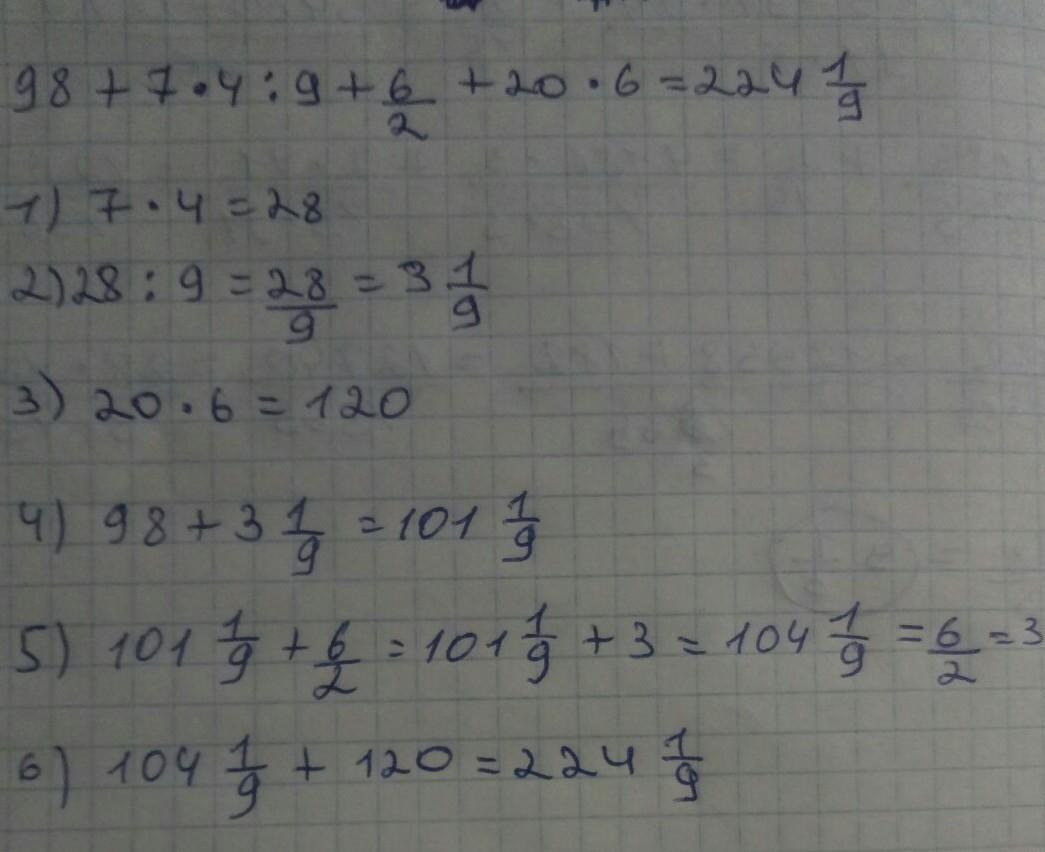 98 + 7 · 4 : 9 + 6/2 + 20 · 6 = 224 1/9
1) 7 · 4 = 28
2) 28 : 9 = 28/9 = 3 1/9
3) 20 · 6 = 120
4) 98 + 3 1/9 = 101 1/9
5) 101 1/9 + 6/2 = 101 1/9 + 3 = 104 1/9 = 6/2 = 3
6) 104 1/9 + 120 = 224 1/9